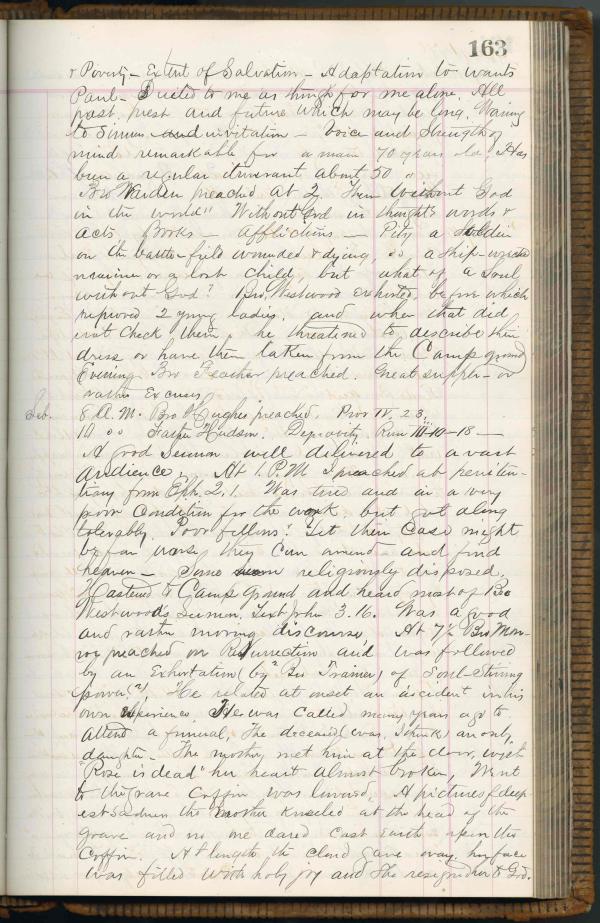 163
& Poverty - Extent of Salvation - Adaptation to wants
Paul - Suited to me as though for me alone. All
past, prest and future which may be long. Warning
to Sinners and invitation - Voice and Strength of
mind remarkable for a man 70 years old. Has
been a regular itinerant about 50 "
Bro Warden preached at 2. Them Without God
in the world" Without God in thoughts words &
acts Works - afflictions - Pity a soldier
on the battle-field wounded & dying, do a ship-wrecked
mariner or a lost child, but what of a Soul
without God? Bro. Westwood exhorted, before which
reproved 2 young ladies, and when that did
not check them, he threatened to describe their
dress or have them taken from the Camp ground
Evening Bro Feather preached. Great supper - or
rather Excuses
Sab. 8 A.M. Bro Hughes preached, Prov IV, 23,
10 do Father Hudson. Depravity Rom 10-18 -
A good Sermon well delivered to a vast
audience. At 1. P.M I preached at peniten-
tiary from Eph. 2, 1. Was tired and in a very
poor Condition for the work but got along
tolerably. Poor fellows! Yet their case might
be far worse they can amend and find
heaven - Some religiously disposed.
Hastened to Camp ground and heard most of Bro
Westwoods Sermon. Text John 3.16. Was a good
and rather moving discourse, At 7½ Bro Mon-
roe preached on Resurrection and was followed
by an Exhortation (by Bro Trainer) of Soul-Stirring
power(?) He related at onset an accident in his
own experience. He was called many years ago to
attend a funeral, The deceased (was, I think) an only
daughter - The mother met him at the door, with
"Rose is dead" her heart almost broken, Went
to the grave Coffin was lowered, A picture of deep-
est sadness the mother kneeled at the head of the
grave and no one dared cast earth upon the
Coffin. At length the cloud gave way, her face
was filled with holy joy and she resigned her to God.